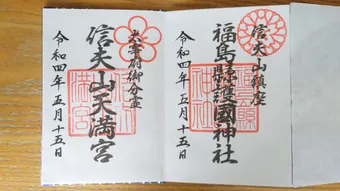 信夫山鎮座
福島縣護國神社
令和四年五月十五日
太宰府御分霊
信夫山天満宮
令和四年五月十五日